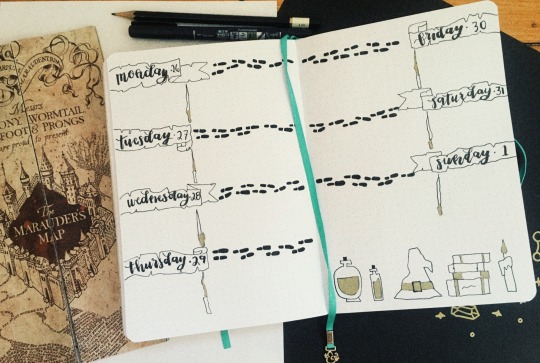 Messrs
ONY, WORMTAIL
FOOT & PRONGS
are proud to present
The
MARAUDER'S
MAP
monday · 26
tuesday 27
wednesday 28
thursday · 29
friday · 30
saturday · 31
sunday 1